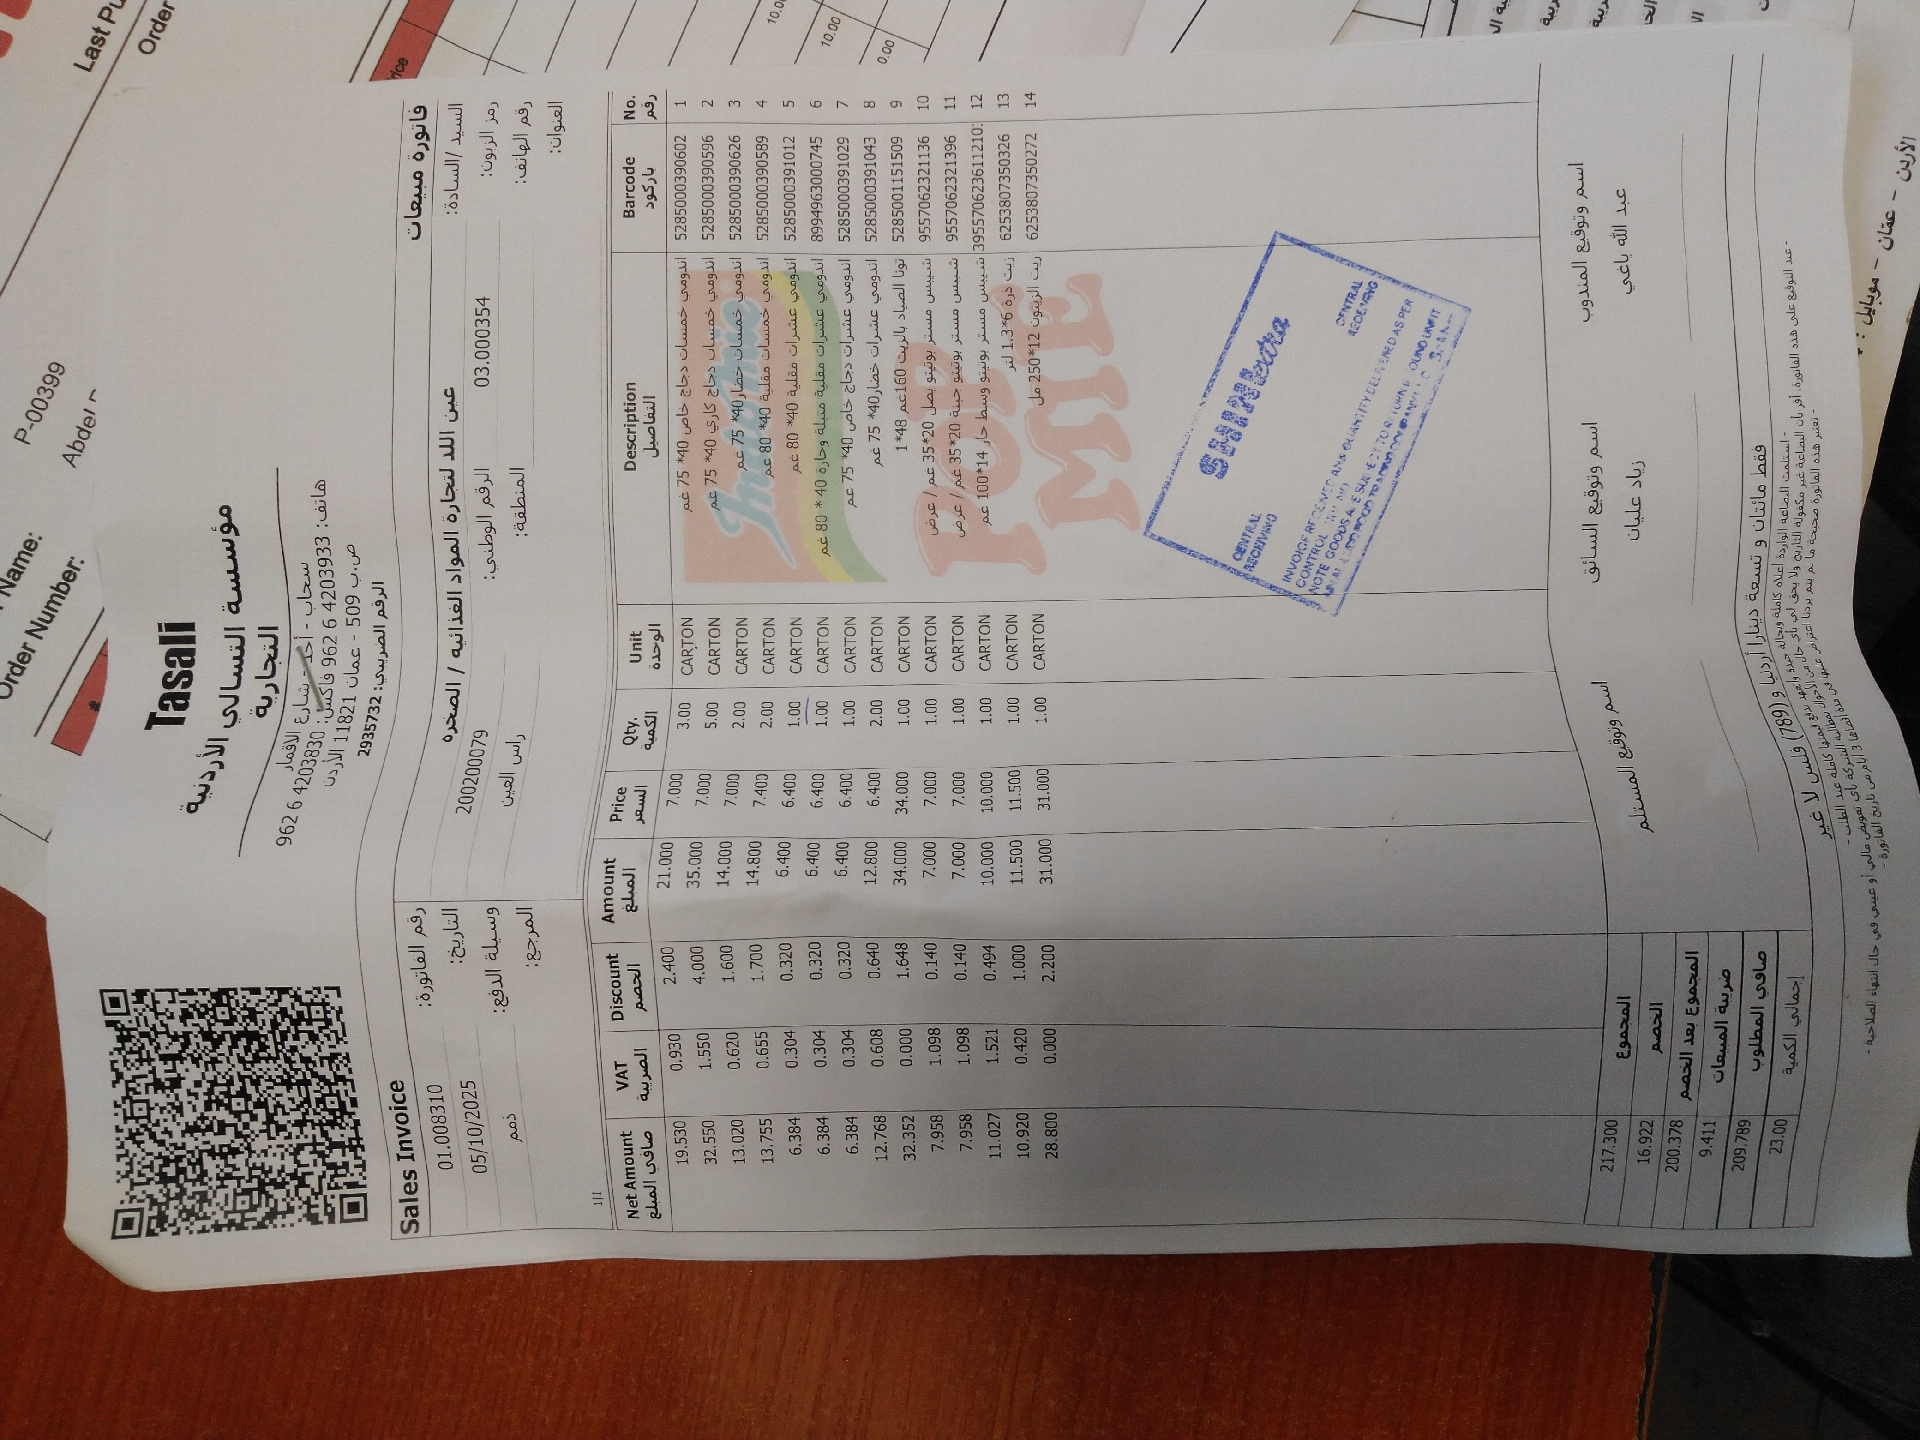 Tasali
مؤسسة التسالي الأردنية
التجارية
سحاب - أحد - شارع الاقمار
هاتف: 4203933 6 962 فاكس: 4203830 6 962
ص.ب 509 - عمان 11821 الأردن
الرقم الضريبي: 2935732
Sales Invoice
فاتورة مبيعات
السيد /السادة: عين اللد لتجارة المواد الغذائيه / الصخره
رقم الفاتورة: 01.008310
رمز الزبون: 03.000354
الرقم الوطني: 200200079
التاريخ: 05/10/2025
رقم الهاتف:
المنطقة: راس العين
وسيلة الدفع: ذمم
العنوان:
المرجع:
1/1
Net Amount VAT Discount Amount Price Qty. Unit Description Barcode No.
صافي المبلغ الضريبة الخصم المبلغ السعر الكمية الوحدة التفاصيل باركود رقم
19.530 0.930 2.400 21.000 7.000 3.00 CARTON اندومي خمسات دجاج خاص 40* 75 غم 5285000390602 1
32.550 1.550 4.000 35.000 7.000 5.00 CARTON اندومي خمسات دجاج كاري 40* 75 غم 5285000390596 2
13.020 0.620 1.600 14.000 7.000 2.00 CARTON اندومي خمسات خضار 40* 75 غم 5285000390626 3
13.755 0.655 1.700 14.800 7.400 2.00 CARTON اندومي خمسات مقلية 40* 80 غم 5285000390589 4
6.384 0.304 0.320 6.400 6.400 1.00 CARTON اندومي عشرات مقلية 40* 80 غم 5285000391012 5
6.384 0.304 0.320 6.400 6.400 1.00 CARTON اندومي عشرات مقلية متبلة وحارة 40 * 80 غم 8994963000745 6
6.384 0.304 0.320 6.400 6.400 1.00 CARTON اندومي عشرات دجاج خاص 40* 75 غم 5285000391029 7
12.768 0.608 0.640 12.800 6.400 2.00 CARTON اندومي عشرات خضار 40* 75 غم 5285000391043 8
32.352 0.000 1.648 34.000 34.000 1.00 CARTON تونا الصياد بالزيت 160غم 48*1 5285001151509 9
7.958 1.098 0.140 7.000 7.000 1.00 CARTON شيبس مستر بوتيتو بصل 20*35 غم / عرض 9557062321136 10
7.958 1.098 0.140 7.000 7.000 1.00 CARTON شيبس مستر بوتيتو جبنة 20*35 غم / عرض 9557062321396 11
11.027 1.521 0.494 10.000 10.000 1.00 CARTON شيبس مستر بوتيتو وسط حار 14*100 غم 12
10.920 0.420 1.000 11.500 11.500 1.00 CARTON زيت ذرة 6*1.3 لتر 6253807350326 13
28.800 0.000 2.200 31.000 31.000 1.00 CARTON زيت الزيتون 12*250 مل 6253807350272 14
Indomie
POP
MIE
CENTRAL
RECEIVING
CENTRAL
RECEIVING
اسم وتوقيع المندوب
عبد الله ياغي
اسم وتوقيع السائق
زياد عليان
اسم وتوقيع المستلم
217.300 المجموع
16.922 الخصم
200.378 المجموع بعد الخصم
9.411 ضريبة المبيعات
209.789 صافي المطلوب
23.00 إجمالي الكمية
فقط مائتان و تسعة دينارا أردنيا و (789) فلس لا غير
Last Pu
Order
P-00399
Name:
Order Number:
#
10.00
0.00
الأردن - عمّان - موبايل :